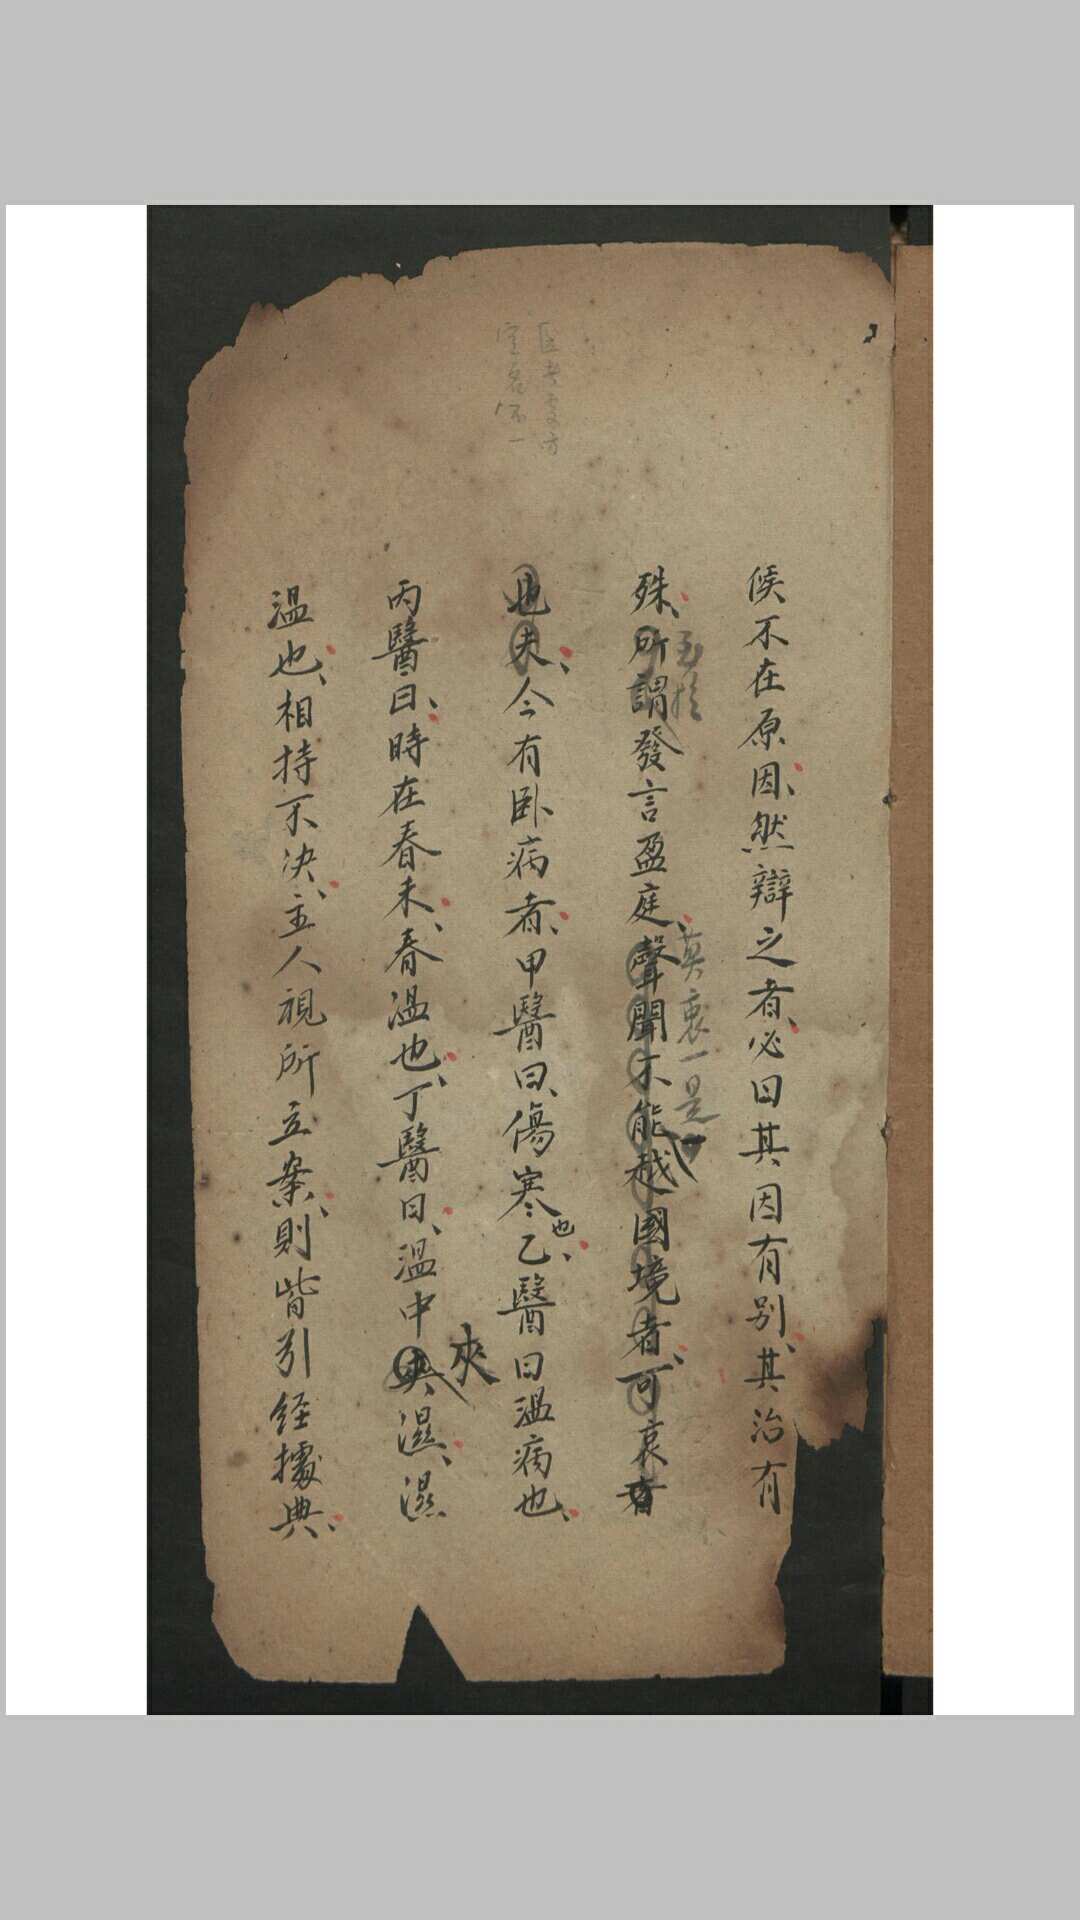 候不在原因、然辯之者、必曰其因有別、其治有
殊、所謂發言盈庭、聲聞不能越國境者、可哀者
至於
莫衷一是
也夫、今有卧病者、甲醫曰、傷寒也、乙醫曰温病也、
丙醫曰、時在春末、春温也、丁醫曰、温中夾濕、濕
夾
温也、相持不決、主人視所立案、則皆引經據典、
医者處方
定名不一